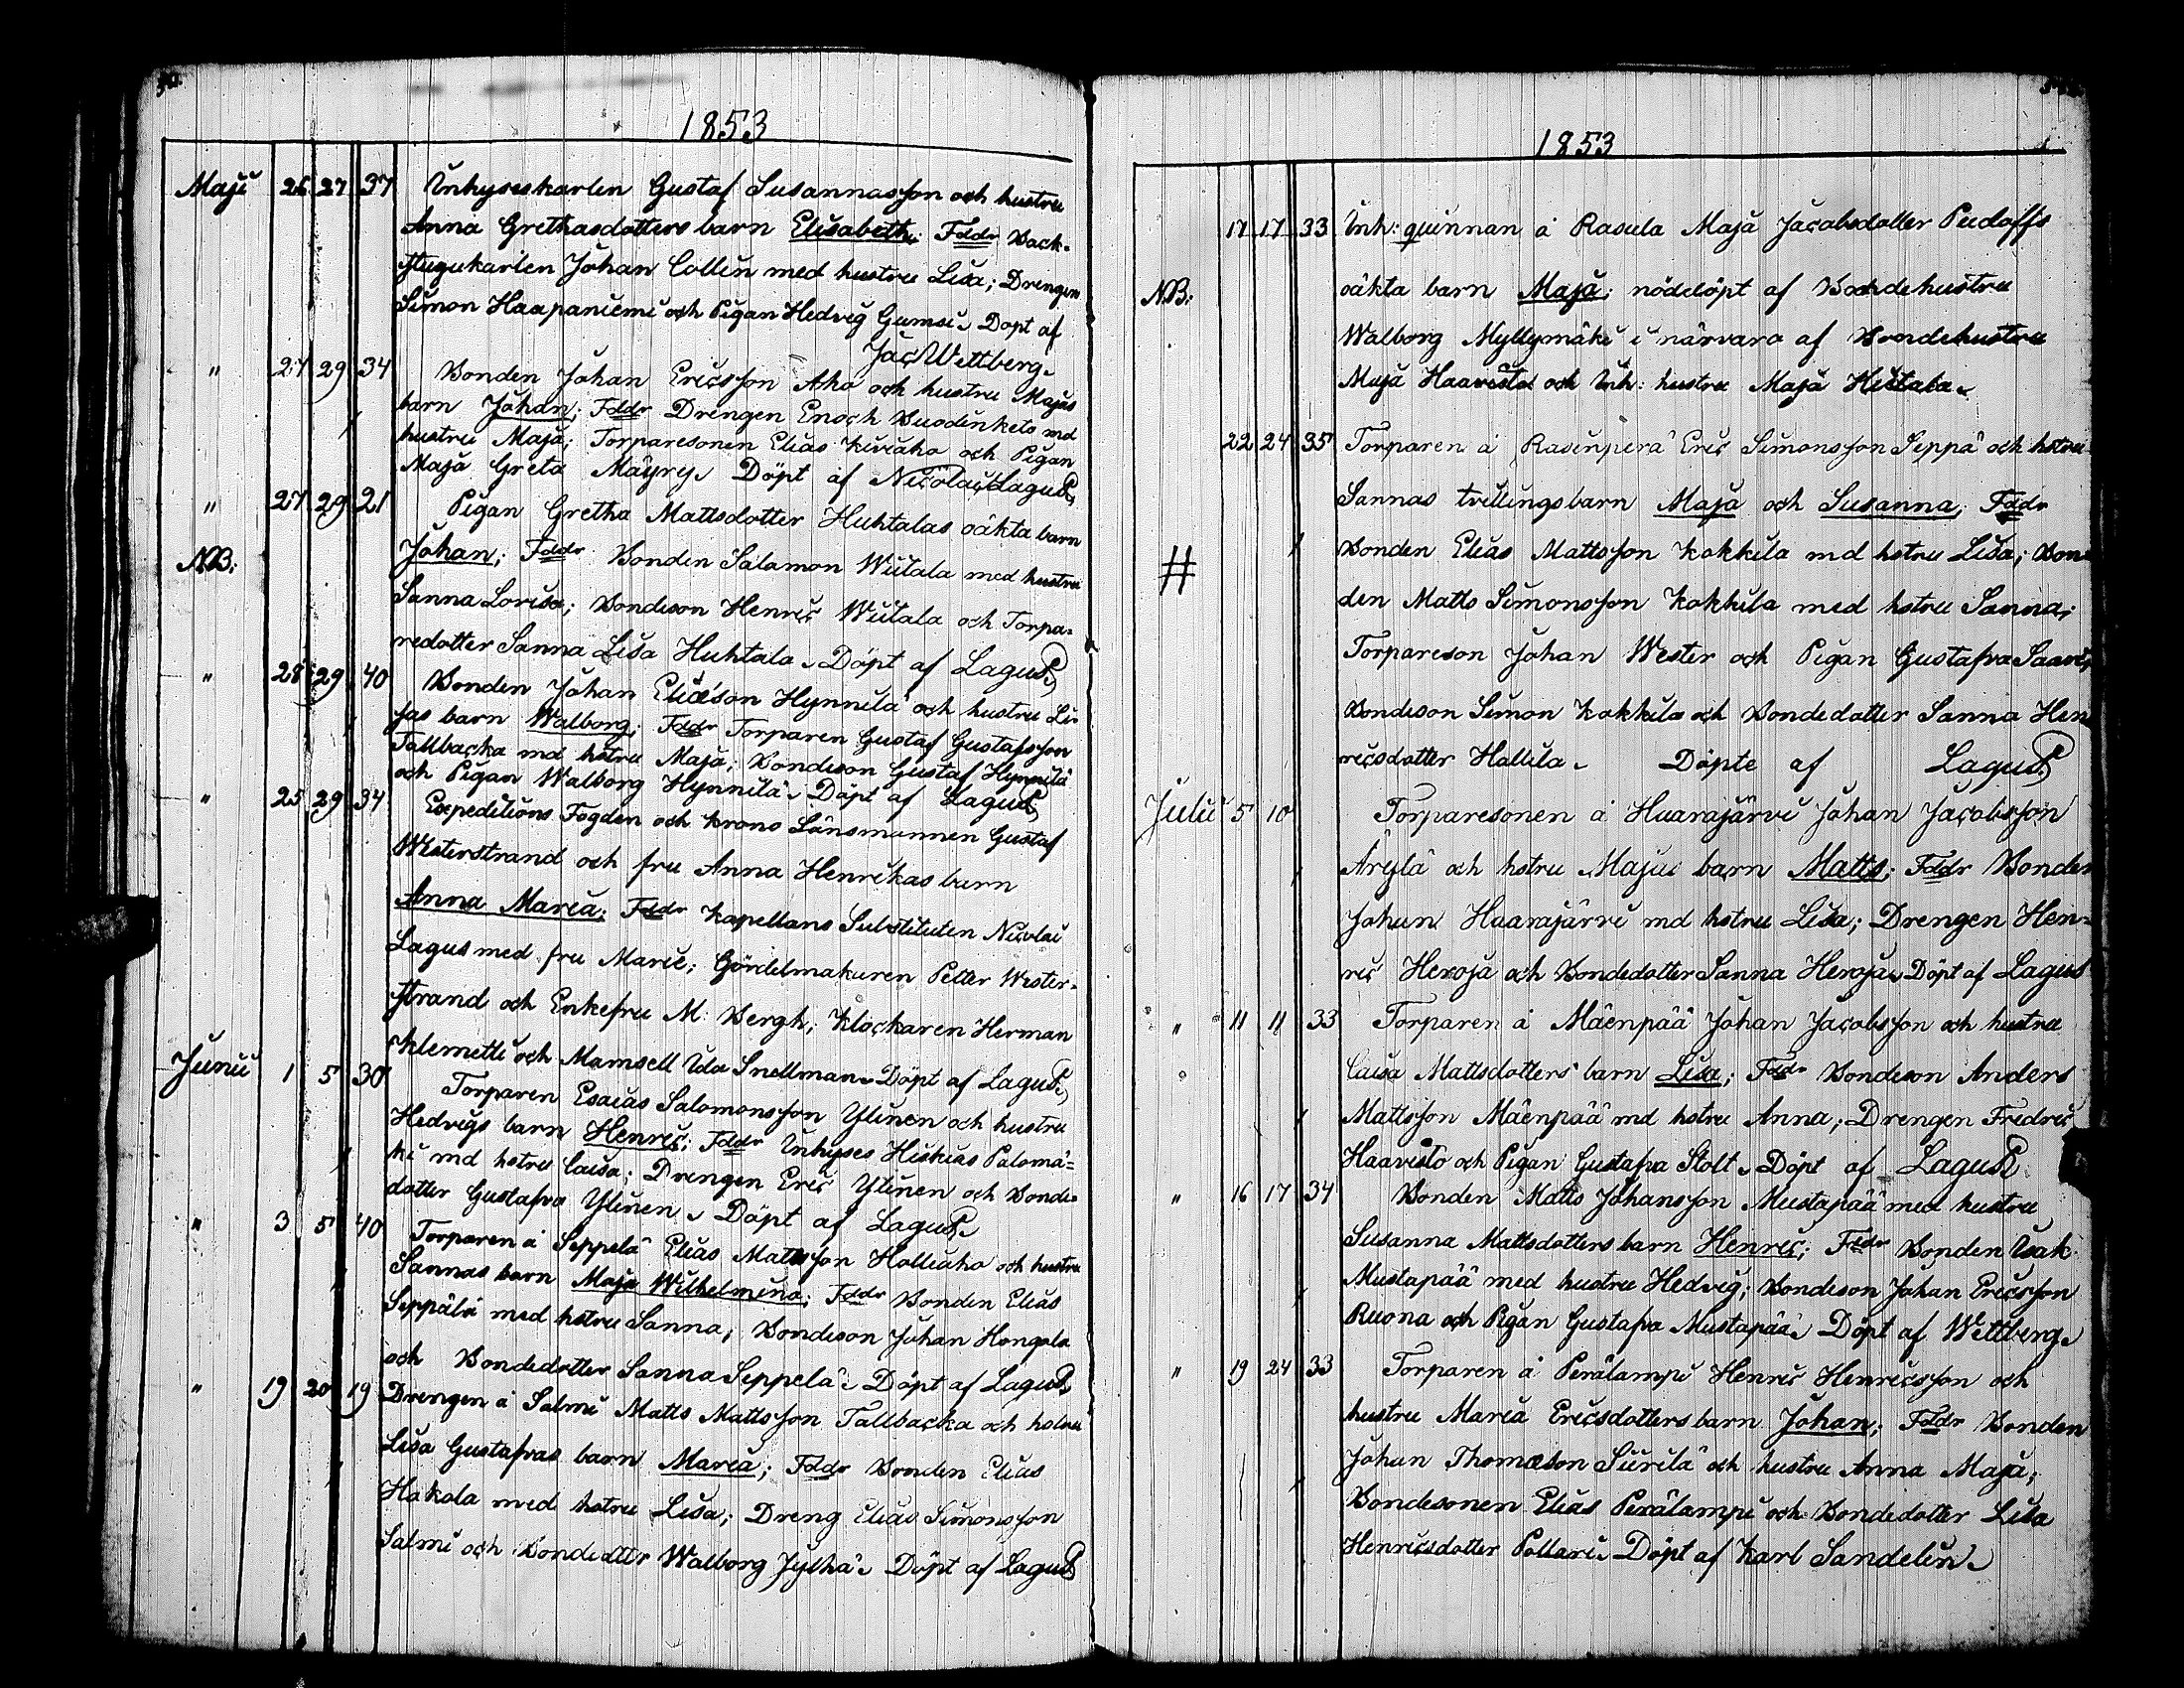 1853
Maji 26 27 37 Inhyseskarlen Gustaf Susannasson och hustru
Anna Grethasdotters barn Elisabeth; Fddr Back-
stugukarlen Johan Collin med hustru Lisa; Drengen
Simon Haapaniemi och Pigan Hedvig Gumsi. Döpt af
Jac Wettberg.
" 27 29 34 Bonden Johan Ericsson Aho och hustru Majas
barn Johan; Fddr Drengen Enoch Buodinketo md
hustru Maja; Torparesonen Elias Kiviaho och Pigan
Maja Greta Mäyry. Döpt af Nicolai Lagus
" 27 29 21 Pigan Gretha Mattsdotter Huhtalas oäkta barn
NB: Johan; Fddr Bonden Salomon Wiitala med hustru
Sanna Lovisa; Bondeson Henric Wiitala och Torpa-
redotter Sanna Lisa Huhtala. Döpt af Lagus
" 28 29 40 Bonden Johan Eliæson Hynnilä och hustru Li-
sas barn Walborg; Fddr Torparen Gustaf Gustafsson
Tallbacka md hstru Maja; Bondeson Gustaf Hynnilä
och Pigan Walborg Hynnilä. Döpt af Lagus
" 25 29 34 Expeditions Fogden och krono Länsmannen Gustaf
Westerstrand och fru Anna Henrikas barn
Anna Maria; Fddr Kapellans Substituten Nicolai
Lagus med fru Marie; Gördelmakaren Petter Wester-
strand och Enkefru M: Bergh; Klockaren Herman
Klemetti och Mamsell Ida Snellman. Döpt af Lagus
Junii 1 5 30 Torparen Esaias Salomonsson Ylinen och hustru
Hedvigs barn Henric; Fddr Inhyses Hiskias Palomä-
ki md hstru Caisa; Drengen Eric Ylinen och Bonde-
dotter Gustafva Ylinen. Döpt af Lagus
" 3 5 40 Torparen å Seppelä Elias Mattsson Halliaho och hustru
Sannas barn Maja Wilhelmina; Fddr Bonden Elias
Seppälä med hstru Sanna; Bondeson Johan Hongola
och Bondedotter Sanna Seppelä. Döpt af Lagus
" 19 20 19 Drengen å Salmi Matts Mattsson Tallbacka och hstru
Lisa Gustafvas barn Maria; Fddr Bonden Elias
Hakola med hstru Lisa; Dreng Elias Simonsson
Salmi och Bondedttr Walborg Jylhä. Döpt af Lagus
1853
17 17 33 Inh: quinnan å Rasula Maja Jacobsdotter Pudoffs
NB: oäkta barn Maja; nöddöpt af Bondehustru
Walborg Myllymäki i närvaro af Bondehustru
Maja Haavisto och Inh: hustru Maja Hietala.
22 24 35 Torparen å Rasinperä Eric Simonsson Seppä och hstru
Sannas tvillingsbarn Maja och Susanna; Fddr
# Bonden Elias Mattsson Kokkila md hstru Lisa; Bon-
den Matts Simonsson Kokkila med hstru Sanna;
Torpareson Johan Wester och Pigan Gustafva Saari;
Bondeson Simon Kokkila och Bondedotter Sanna Hen
ricsdotter Hallila. Döpte af Lagus
Julii 5 10 Torparesonen å Haarajärvi Johan Jacobsson
Äijlä och hstru Majas barn Matts; Fddr Bonden
Johan Haarajärvi md hstru Lisa; Drengen Hen-
ric Heroja och Bondedotter Sanna Heroja. Döpt af Lagus
" 11 11 33 Torparen å Mäenpää Johan Jacobsson och hustru
Caisa Mattsdotters barn Lisa; Fddr Bondeson Anders
Mattsson Mäenpää md hstru Anna; Drengen Fredric
Haavisto och Pigan Gustafva Stolt. Döpt af Lagus
" 16 17 34 Bonden Matts Johansson Mustapää med hustru
Susanna Mattsdotters barn Henric; Fddr Bonden Isak
Mustapää med hustru Hedvig; Bondeson Johan Ericsson
Ruona och Pigan Gustafva Mustapää. Döpt af Wettberg.
" 19 24 33 Torparen å Perälampi Henric Henricsson och
hustru Maria Ericsdotters barn Johan; Fddr Bonden
Johan Thomæson Siirilä och hustru Anna Maja;
Bondesonen Elias Perälampi och Bondedotter Lisa
Henricsdotter Pollari. Döpt af Karl Sandelin.